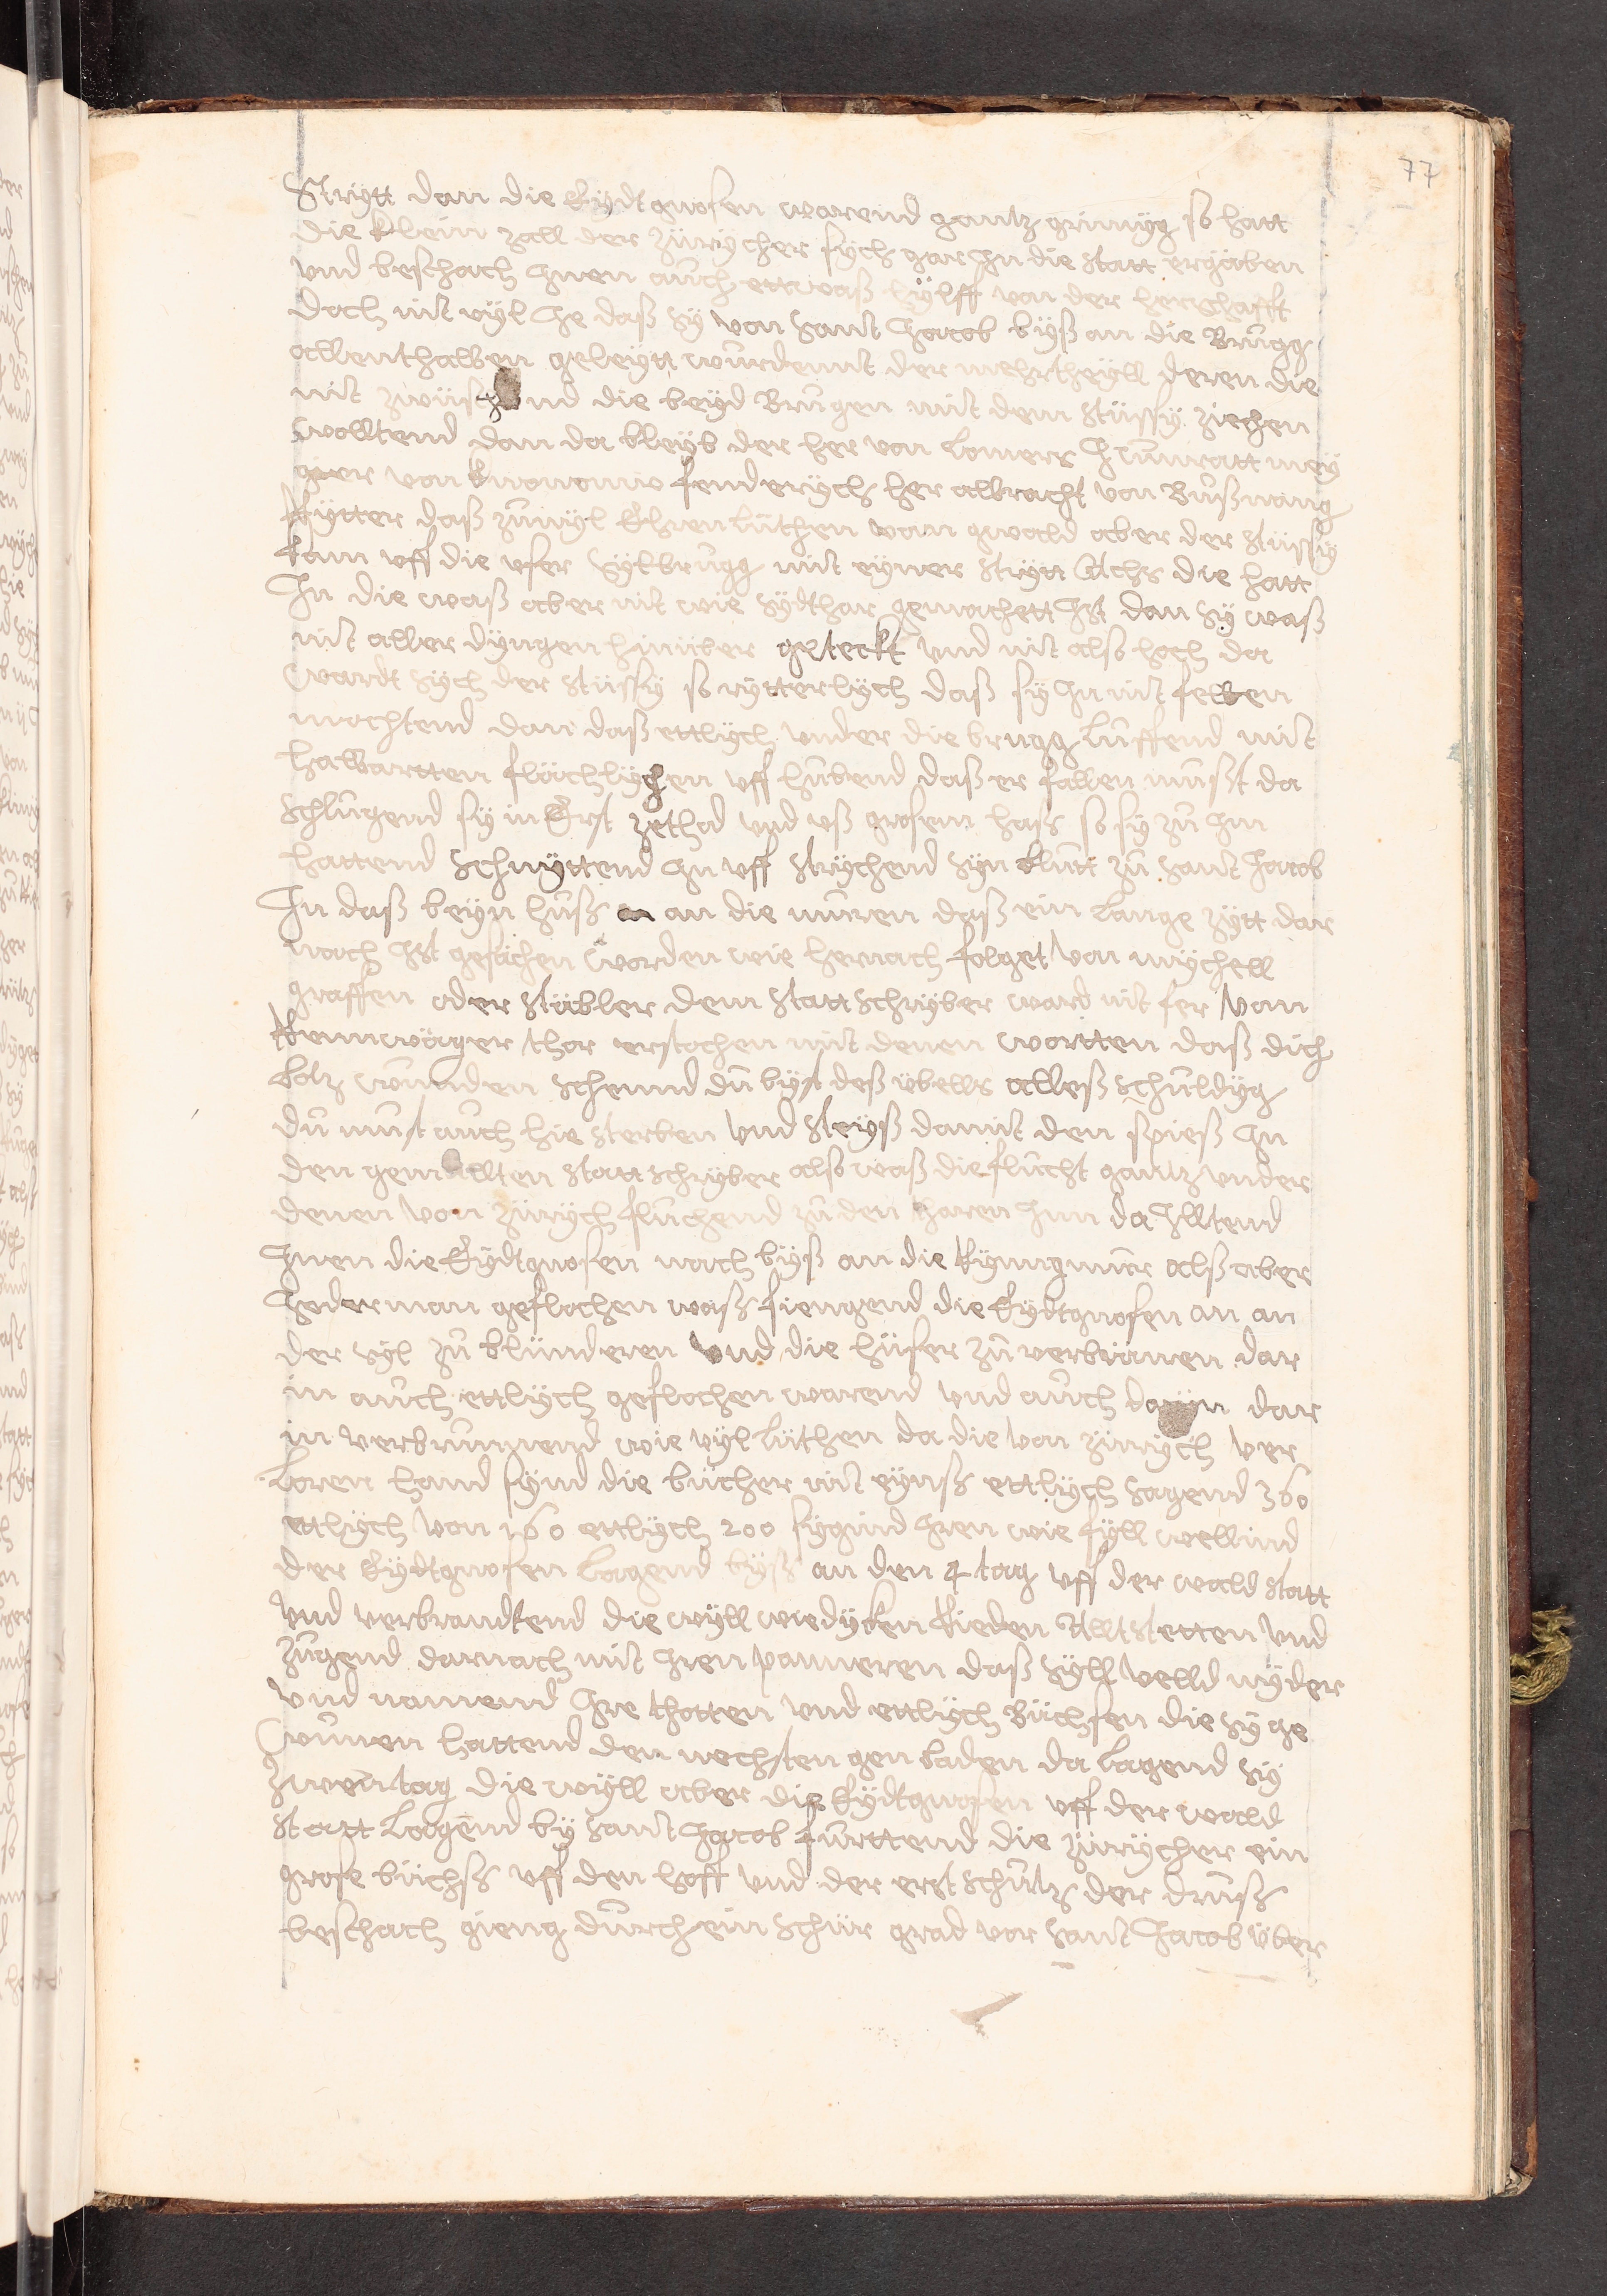 77
Strytt dan die Eydtgnosen warend gantz grimyg so hatt
die klein zall der Züricher sych gar jn die statt ergäben
und beschach jnen auch ettwaß hÿlff von der herschafft
doch nit vyl Je daß sy von sant Jacob byß an die Brugg
allenthalben geleytt wurdent der mehrtheyll deren die
nit zwüschend die beyd Brugen mit dem Stüssy ziechen
wolltend dan da bleyb der her von
von fendrych her albracht von Bußnang
Rytter daß zuvyl Ehren lüthen van gwald aber der Stüssy
kam uff die user Sylbrugg mit eyner strytt Achs die hatt
Jn die waß aber nit wie sydthar gemachett Jst dan sy waß
nit aller dyngen hinüber geteckt und nit also hoch da
wardt sych der Stüssy so rytterlych daß sy jn nit fellen
mochtend dan daß ettlych under die brugg luffend mit
halbartten flöchlychen uff hubend daß er fallen mußt da
schlugend sy in Erst zethod und uß grosem haß so sy zu jm
hattend schnyttend jn uff strychend syn blutt zu sant Jacob
Jn daß beyn huß an die muren daß ein lange zytt dar
nach Jst gesächen worden wie hernach folget von mychell
graffen oder Stübler dem Stattschryber ward nit fer von
Rennwäger thor erstochen mit denen wortten daß dich
botz wunden schennd du byst deß übells alleß schuldyg
du must auch hie sterben und steyß damit den spieß jn
den gemellten Stattschryber also waß die flucht gantz under
denen von Zürych fluchend zu den thoren Jnn da Jlltend
Jnen die Eydtgnosen nach byß an die Ryngmur alß aber
Jederman geflochen waß fiengend die Eydtgnosen an an
der Syl zu blünderen und die hüser zu verbrünen dar
in auch ettlych geflochen warend und auch daryn dar
in verbrunnend wie vyl lüthen da die von Zürych ver
loren hand synd die bücher nit eynß ettlych sagend 360
ettlych von 160 ettlych 200 sygind Jren wie fyll wellind
der Eydtgnosen lagend byß an den 4 tag uff der wald statt
und verbrandtend die wyll wiedyken Rieden Alltstetten und
zugend darnach mit Jren panneren daß Syll velld nyder
und namend Jre thotten und ettlych Büchsen die sy ge
wunen hattend den nechsten gen baden da lagend sy
zwen tag die wyll aber die Eydtgnosen uff der wald
statt lagend by sant Jacob furttend die Zürycher ein
grose büchß uff den hoff und der erst schutz der druß
beschach gieng durch ein schür grad vor sant Jacob über